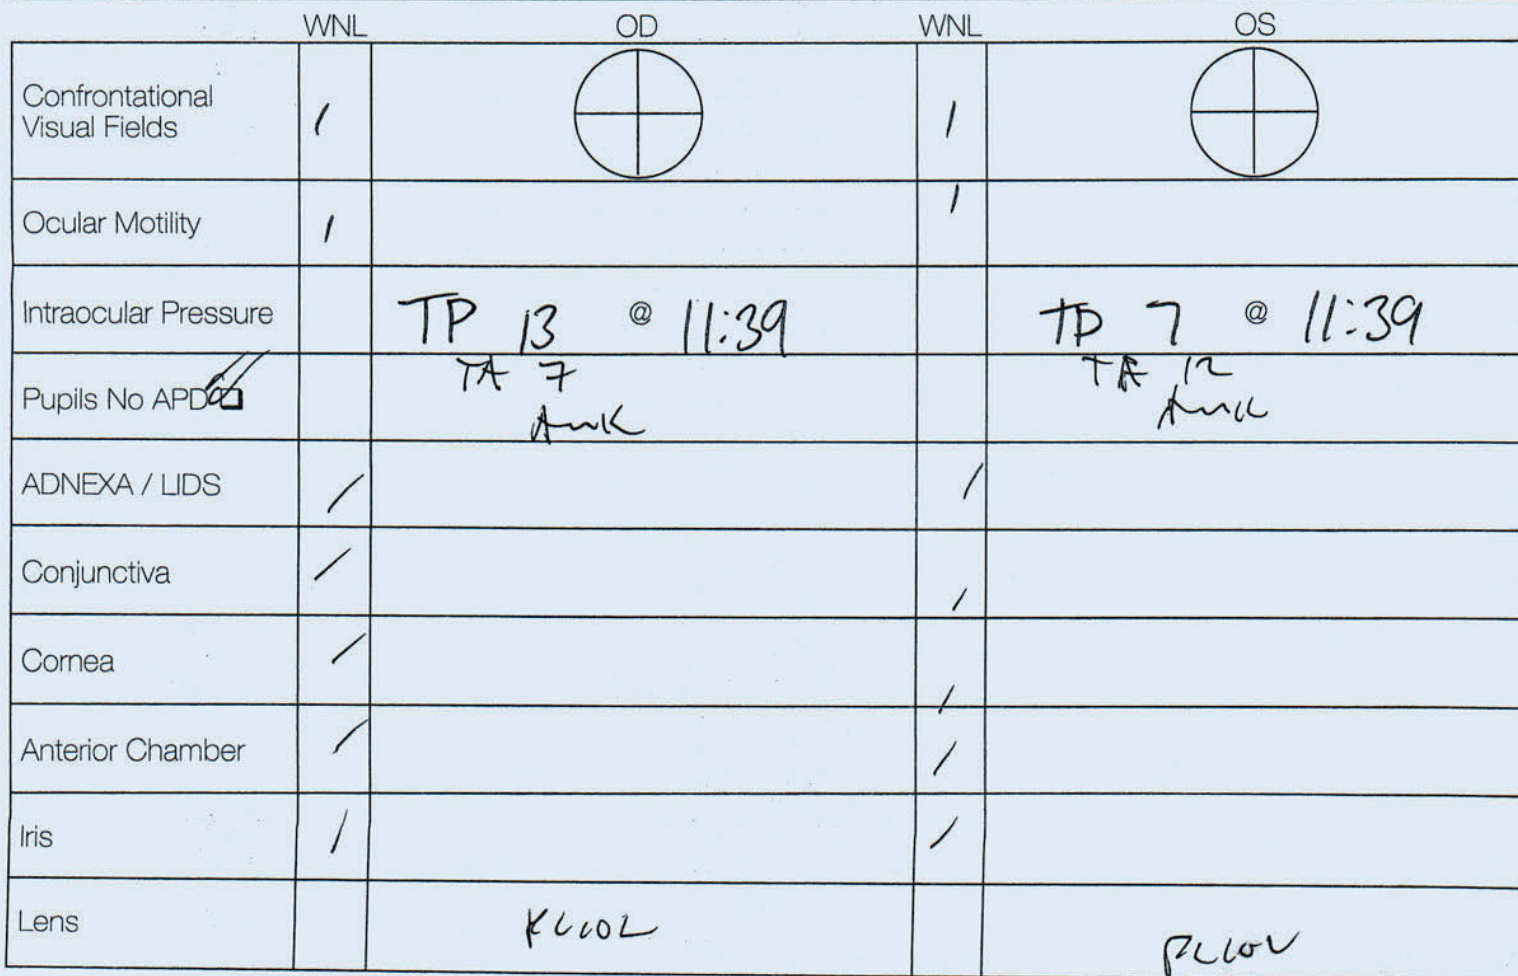 WNL OD WNL OS
Confrontational
Visual Fields / /
Ocular Motility / /
Intraocular Pressure TP 13 @ 11:39 TP 7 @ 11:39
TA 7 TA 12
Pupils No APD
ADNEXA / LIDS / /
Conjunctiva / /
Cornea / /
Anterior Chamber / /
Iris / /
Lens PCIOL PCIOL